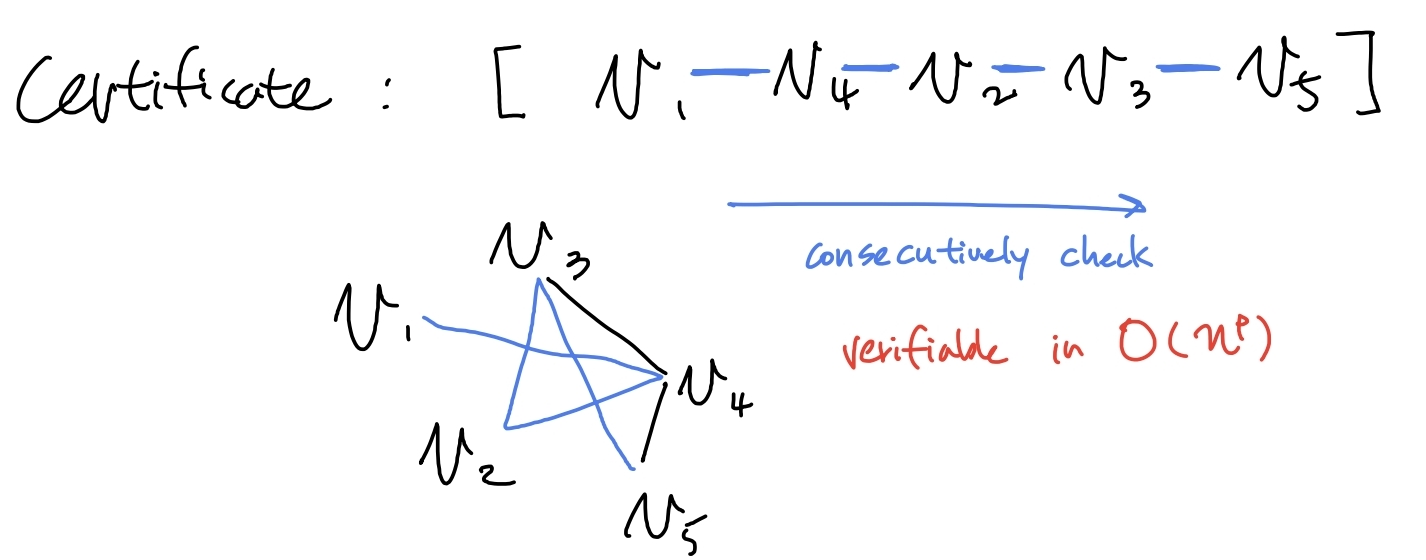 Certificate : [ v₁ — v₄ — v₂ — v₃ — v₅ ]
consecutively check
v₃
v₁
verifiable in O(nᵖ)
v₄
v₂
v₅